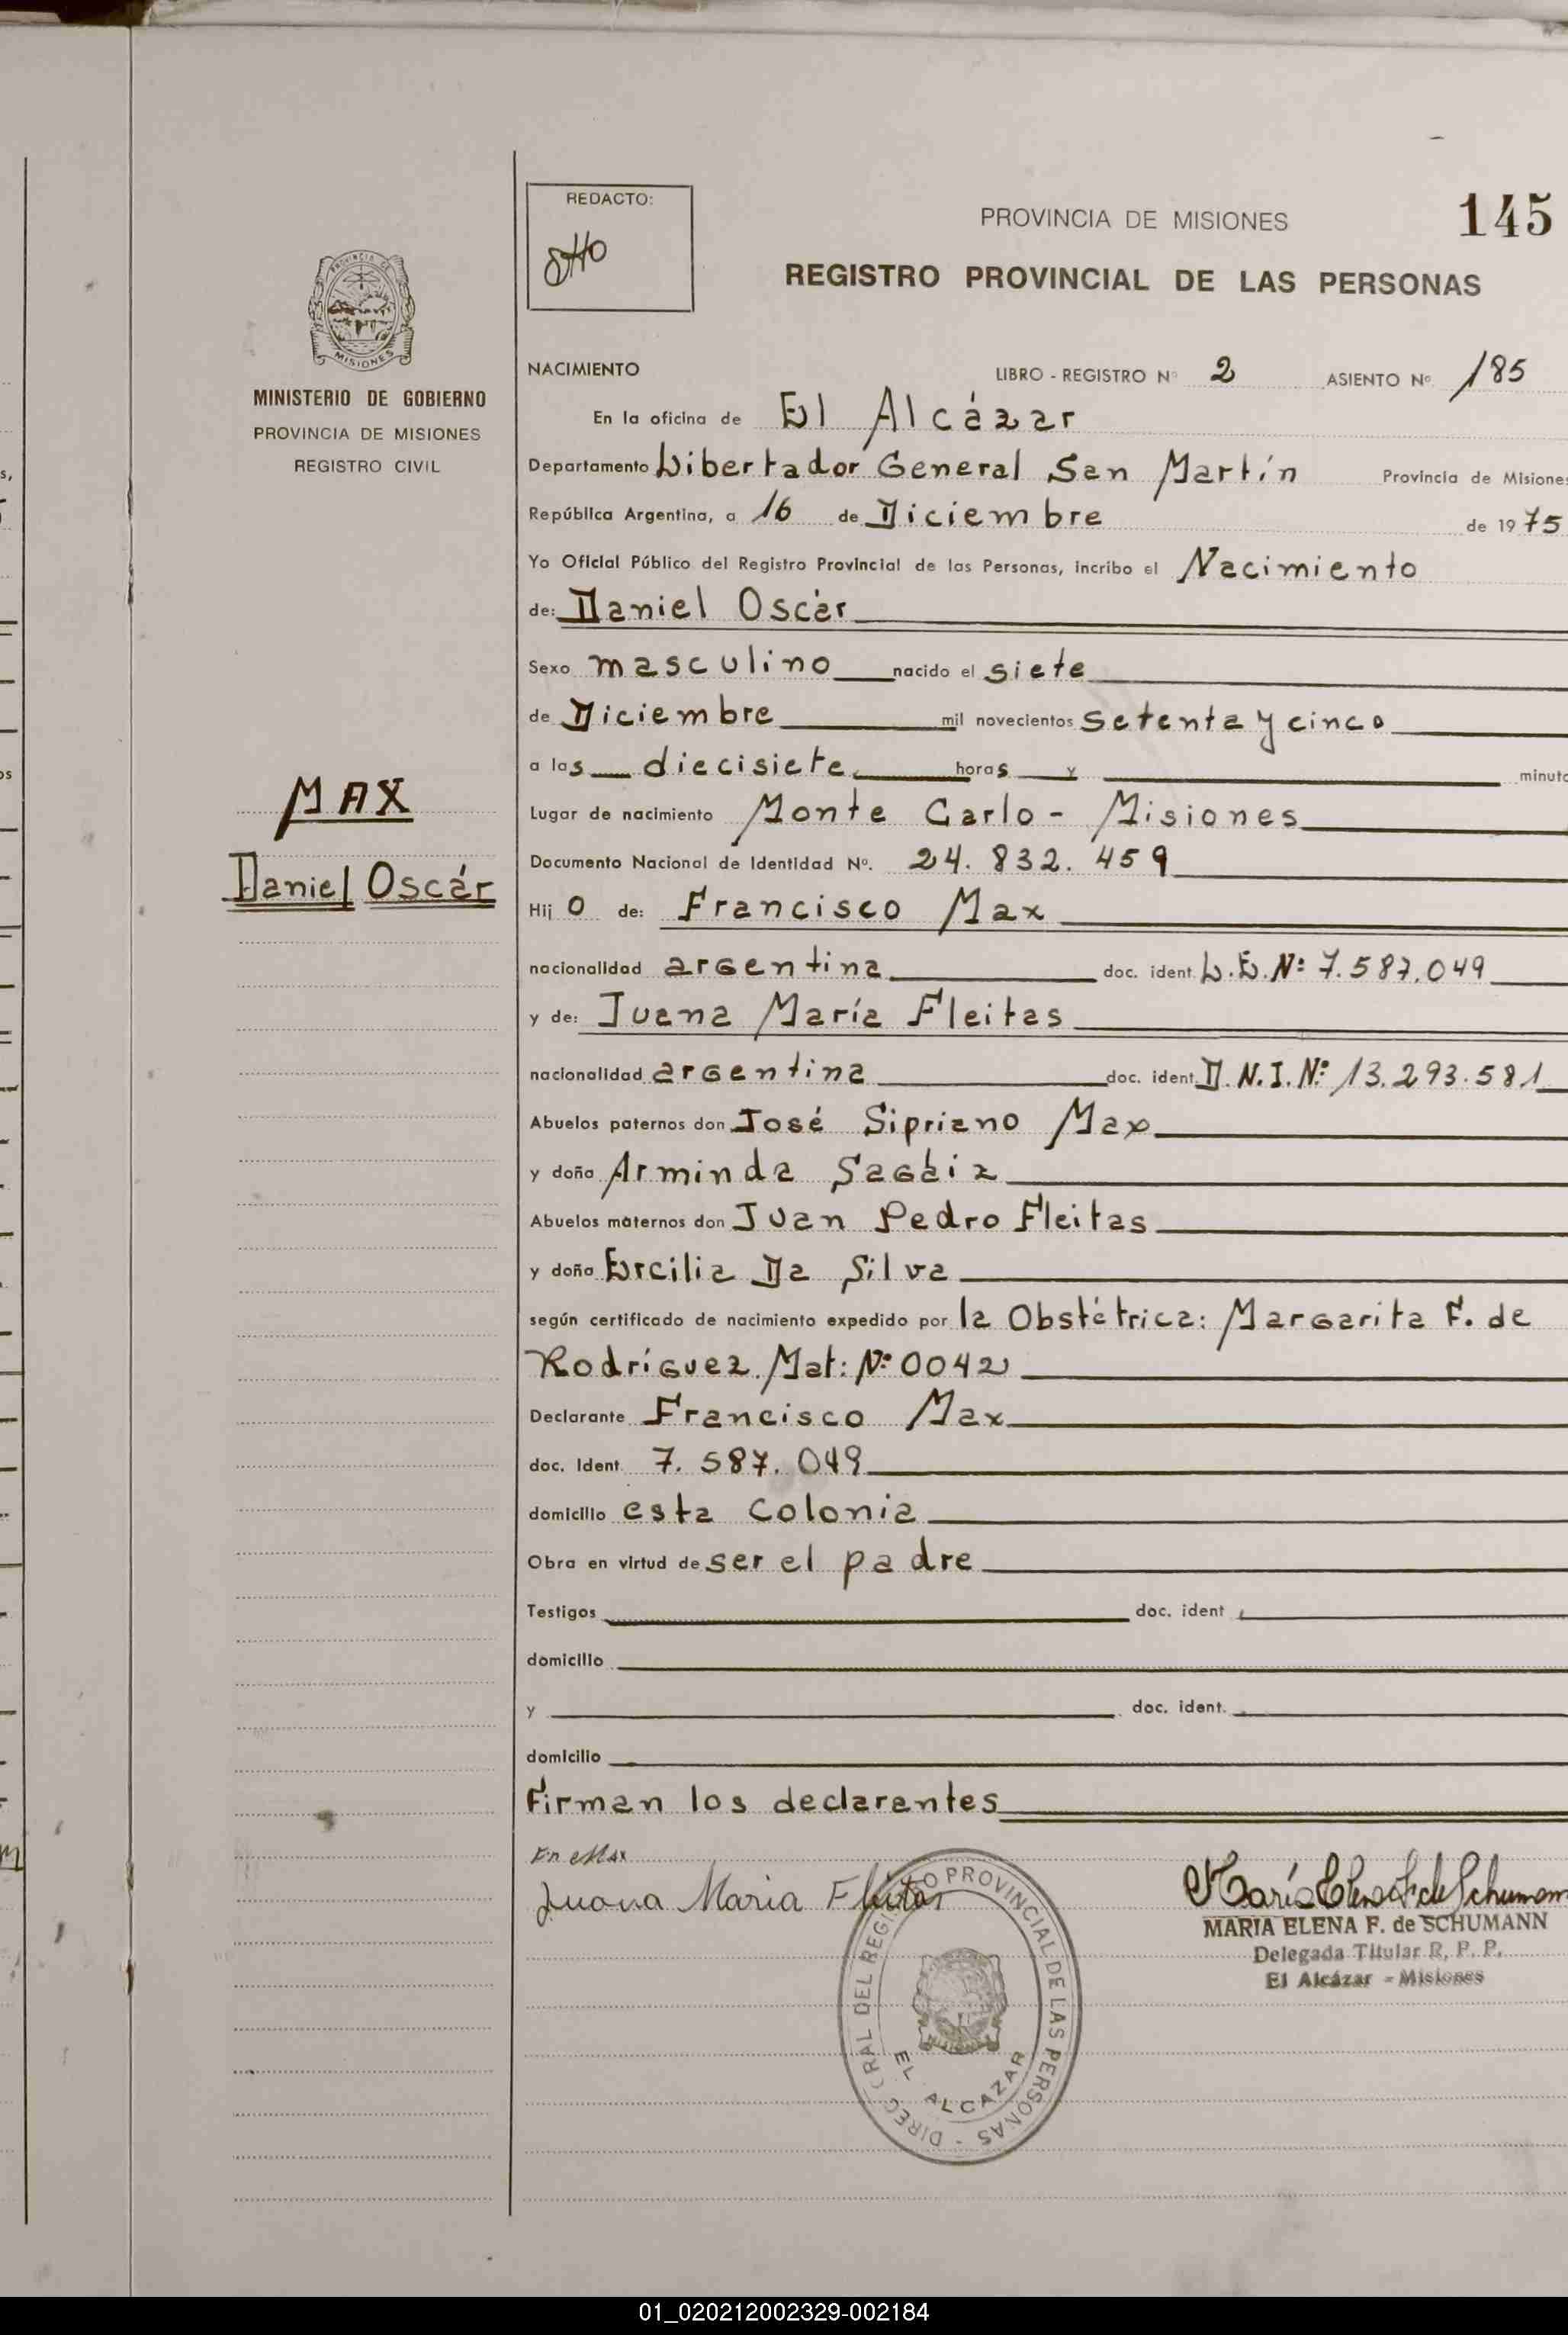 REDACTO:
PROVINCIA DE MISIONES
145
REGISTRO PROVINCIAL DE LAS PERSONAS
MISIONES
MINISTERIO DE GOBIERNO
PROVINCIA DE MISIONES
REGISTRO CIVIL
NACIMIENTO LIBRO - REGISTRO Nº 2 ASIENTO Nº 185
En la oficina de El Alcázar
Departamento Libertador General San Martín Provincia de Misiones
República Argentina, a 16 de Diciembre de 1975
Yo Oficial Público del Registro Provincial de las Personas, incribo el Nacimiento
de: Daniel Oscár
Sexo masculino nacido el siete
de Diciembre mil novecientos setenta y cinco
a las diecisiete horas y minuto
MAX
Daniel Oscár
Lugar de nacimiento Monte Carlo - Misiones
Documento Nacional de Identidad Nº. 24.832.459
Hijo de: Francisco Max
nacionalidad argentina doc. ident. L.E.Nº 7.587.049
y de: Juana María Fleitas
nacionalidad argentina doc. ident. D.N.I.Nº 13.293.581
Abuelos paternos don José Sipriano Max
y doña Arminda Sagáiz
Abuelos maternos don Juan Pedro Fleitas
y doña Ercilia Da Silva
según certificado de nacimiento expedido por la Obstétrica: Margarita F. de
Rodríguez. Mat: Nº 0042
Declarante Francisco Max
doc. Ident. 7.587.049
domicilio esta Colonia
Obra en virtud de ser el padre
Testigos doc. ident
domicilio
y doc. ident.
domicilio
Firman los declarantes
Juana Maria Fleitas
María Elena F. de Schumann
MARIA ELENA F. de SCHUMANN
Delegada Titular R. P. P.
El Alcázar - Misiones
DIREC GRAL DEL REGISTRO PROVINCIAL DE LAS PERSONAS -
EL ALCAZAR
01_020212002329-002184